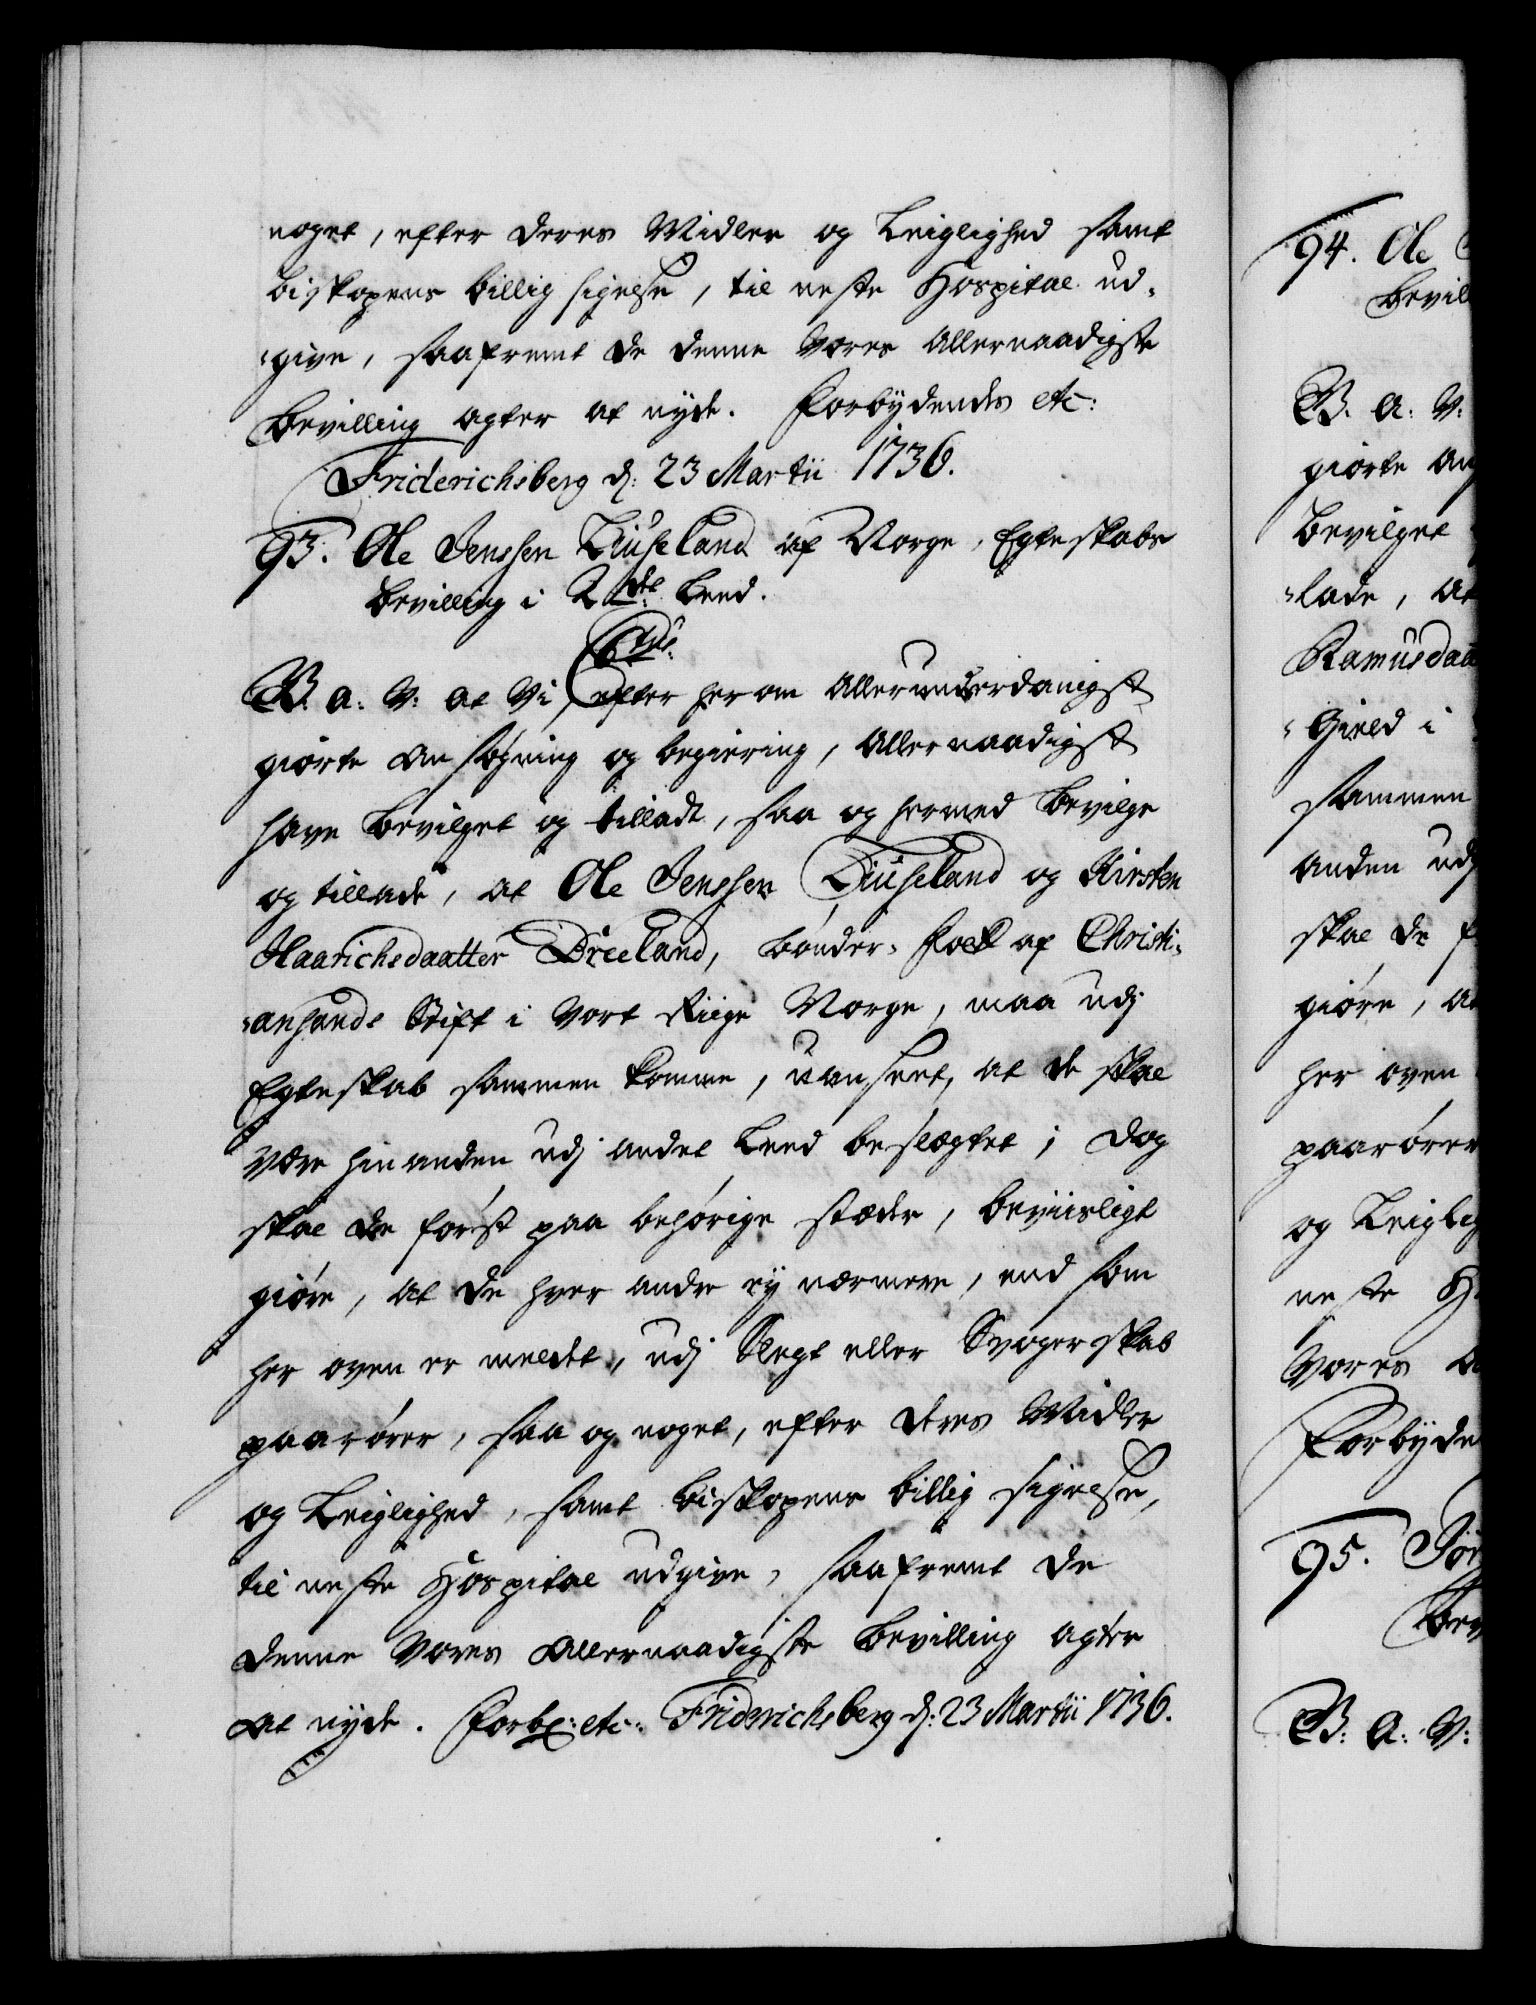 noget, efter deres Midler og Leiglighed samt
biskopens billig sigelse, til neste Hospital ud-
-give, saafremt de denne Vores Allernaadigste
Bevilling agter at nyde. Forbydendes etc:
Friderichsberg d: 23 Martii 1736.
93. Ole Jenssen Liuseland af Norge, Egteskabs
bevilling i 2det Leed.
Ctus:
B. a. V: at Vi, efter herom Allerunderdanigst
giorte Ansøgning og begiering, Allernaadigst
have bevilget og tilladt, saa og hermed bevilge
og tillade, at Ole Jenssen Liuseland og Kirsten
Haarichsdaatter Dreeland, bønder-Folk af Christi-
-ansands Stift i Vort Riige Norge, maa udj
Egteskab sammen komme, uanseet, at de skal
være hinanden udj andet Leed beslægtet; dog
skal de først paa behørige stæder, beviisligt
giøre, at de hver andre ej nærmere, end som
her oven er meldt, udj Slegt eller Svogerskab
paarører, saa og noget, efter deres Midler
og Leiglighed, samt biskopens billig sigelse,
til neste Hospital udgive, saafremt de
denne Vores Allernaadigste Bevilling agter
at nyde. Forb: etc: Friderichsberg d: 23 Martii 1736.
94. Ole
Bevil
B. a: V:
giorte An
bevilget
-lade, at
Ramusdaa
-Gield i
sammen
anden udj
skal de f
giøre, at
her oven
paarører
og Leiglig
neste H
Vores A
Forbyde
95. Jør
Bev
B: a: V: